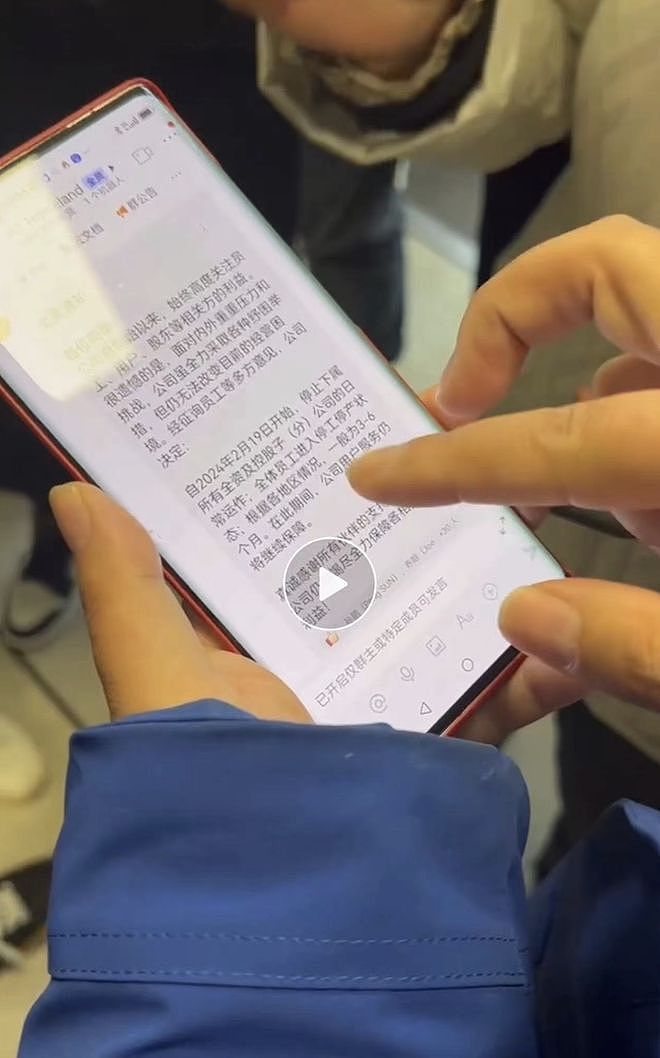 land 全员
1个机器人
文档 群公告
始以来，始终高度关注员
工、用户、股东等相关方的利益。
很遗憾的是，面对内外重重压力和
挑战，公司虽全力采取各种纾困举
措，但仍无法改变目前的经营困
境。经征询员工等多方意见，公司
决定：
自2024年2月19日开始，停止下属
所有全资及控股子（分）公司的日
常运作；全体员工进入停工停产状
态；根据各地区情况，一般为3-6
个月。在此期间，公司用户服务仍
将继续保障。
诚感谢所有伙伴的支
公司仍 尽全力保障各相
利益！
SUN)
已开启仅群主或特定成员可发言
Aa